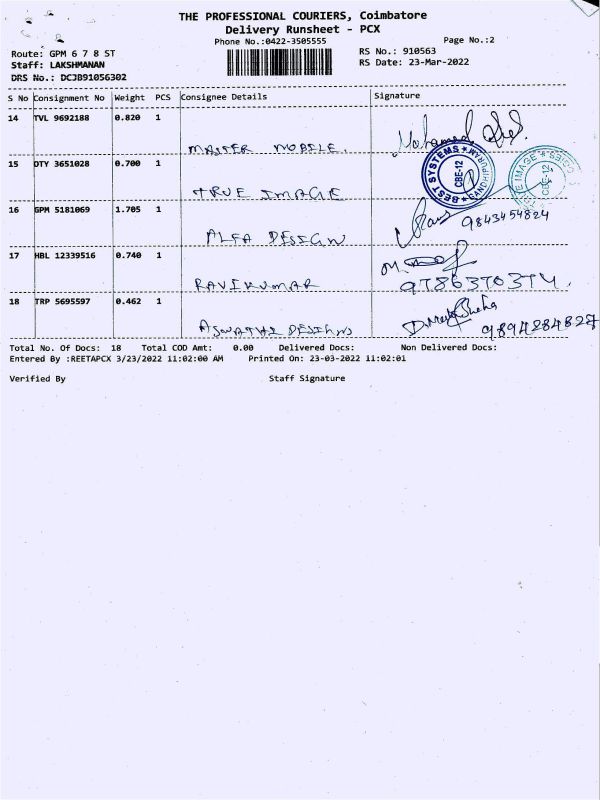 THE PROFESSIONAL COURIERS, Coimbatore
Delivery Runsheet - PCX
Phone No.:0422-3505555
Page No.:2
Route: GPM 6 7 8 ST
RS No.: 910563
Staff: LAKSHMANAN
RS Date: 23-Mar-2022
DRS No.: DCJB91056302
S No Consignment No Weight PCS Consignee Details Signature
14 TVL 9692188 0.820 1
MASTER MOBILE. Mohamed
15 DTY 3651028 0.700 1
BEST SYSTEMS ★ GANDHIPURAM ★ CBE-12
TRUE IMAGE
TRUE IMAGE ★ CBE-12
16 GPM 5181069 1.705 1
ALFA DESIGN 9843454824
17 HBL 12339516 0.740 1
RAVIKUMAR 9786370374.
18 TRP 5695597 0.462 1
ASWATHI DESIGNS 9894284827
Total No. Of Docs: 18 Total COD Amt: 0.00 Delivered Docs: Non Delivered Docs:
Entered By :REETAPCX 3/23/2022 11:02:00 AM Printed On: 23-03-2022 11:02:01
Verified By Staff Signature